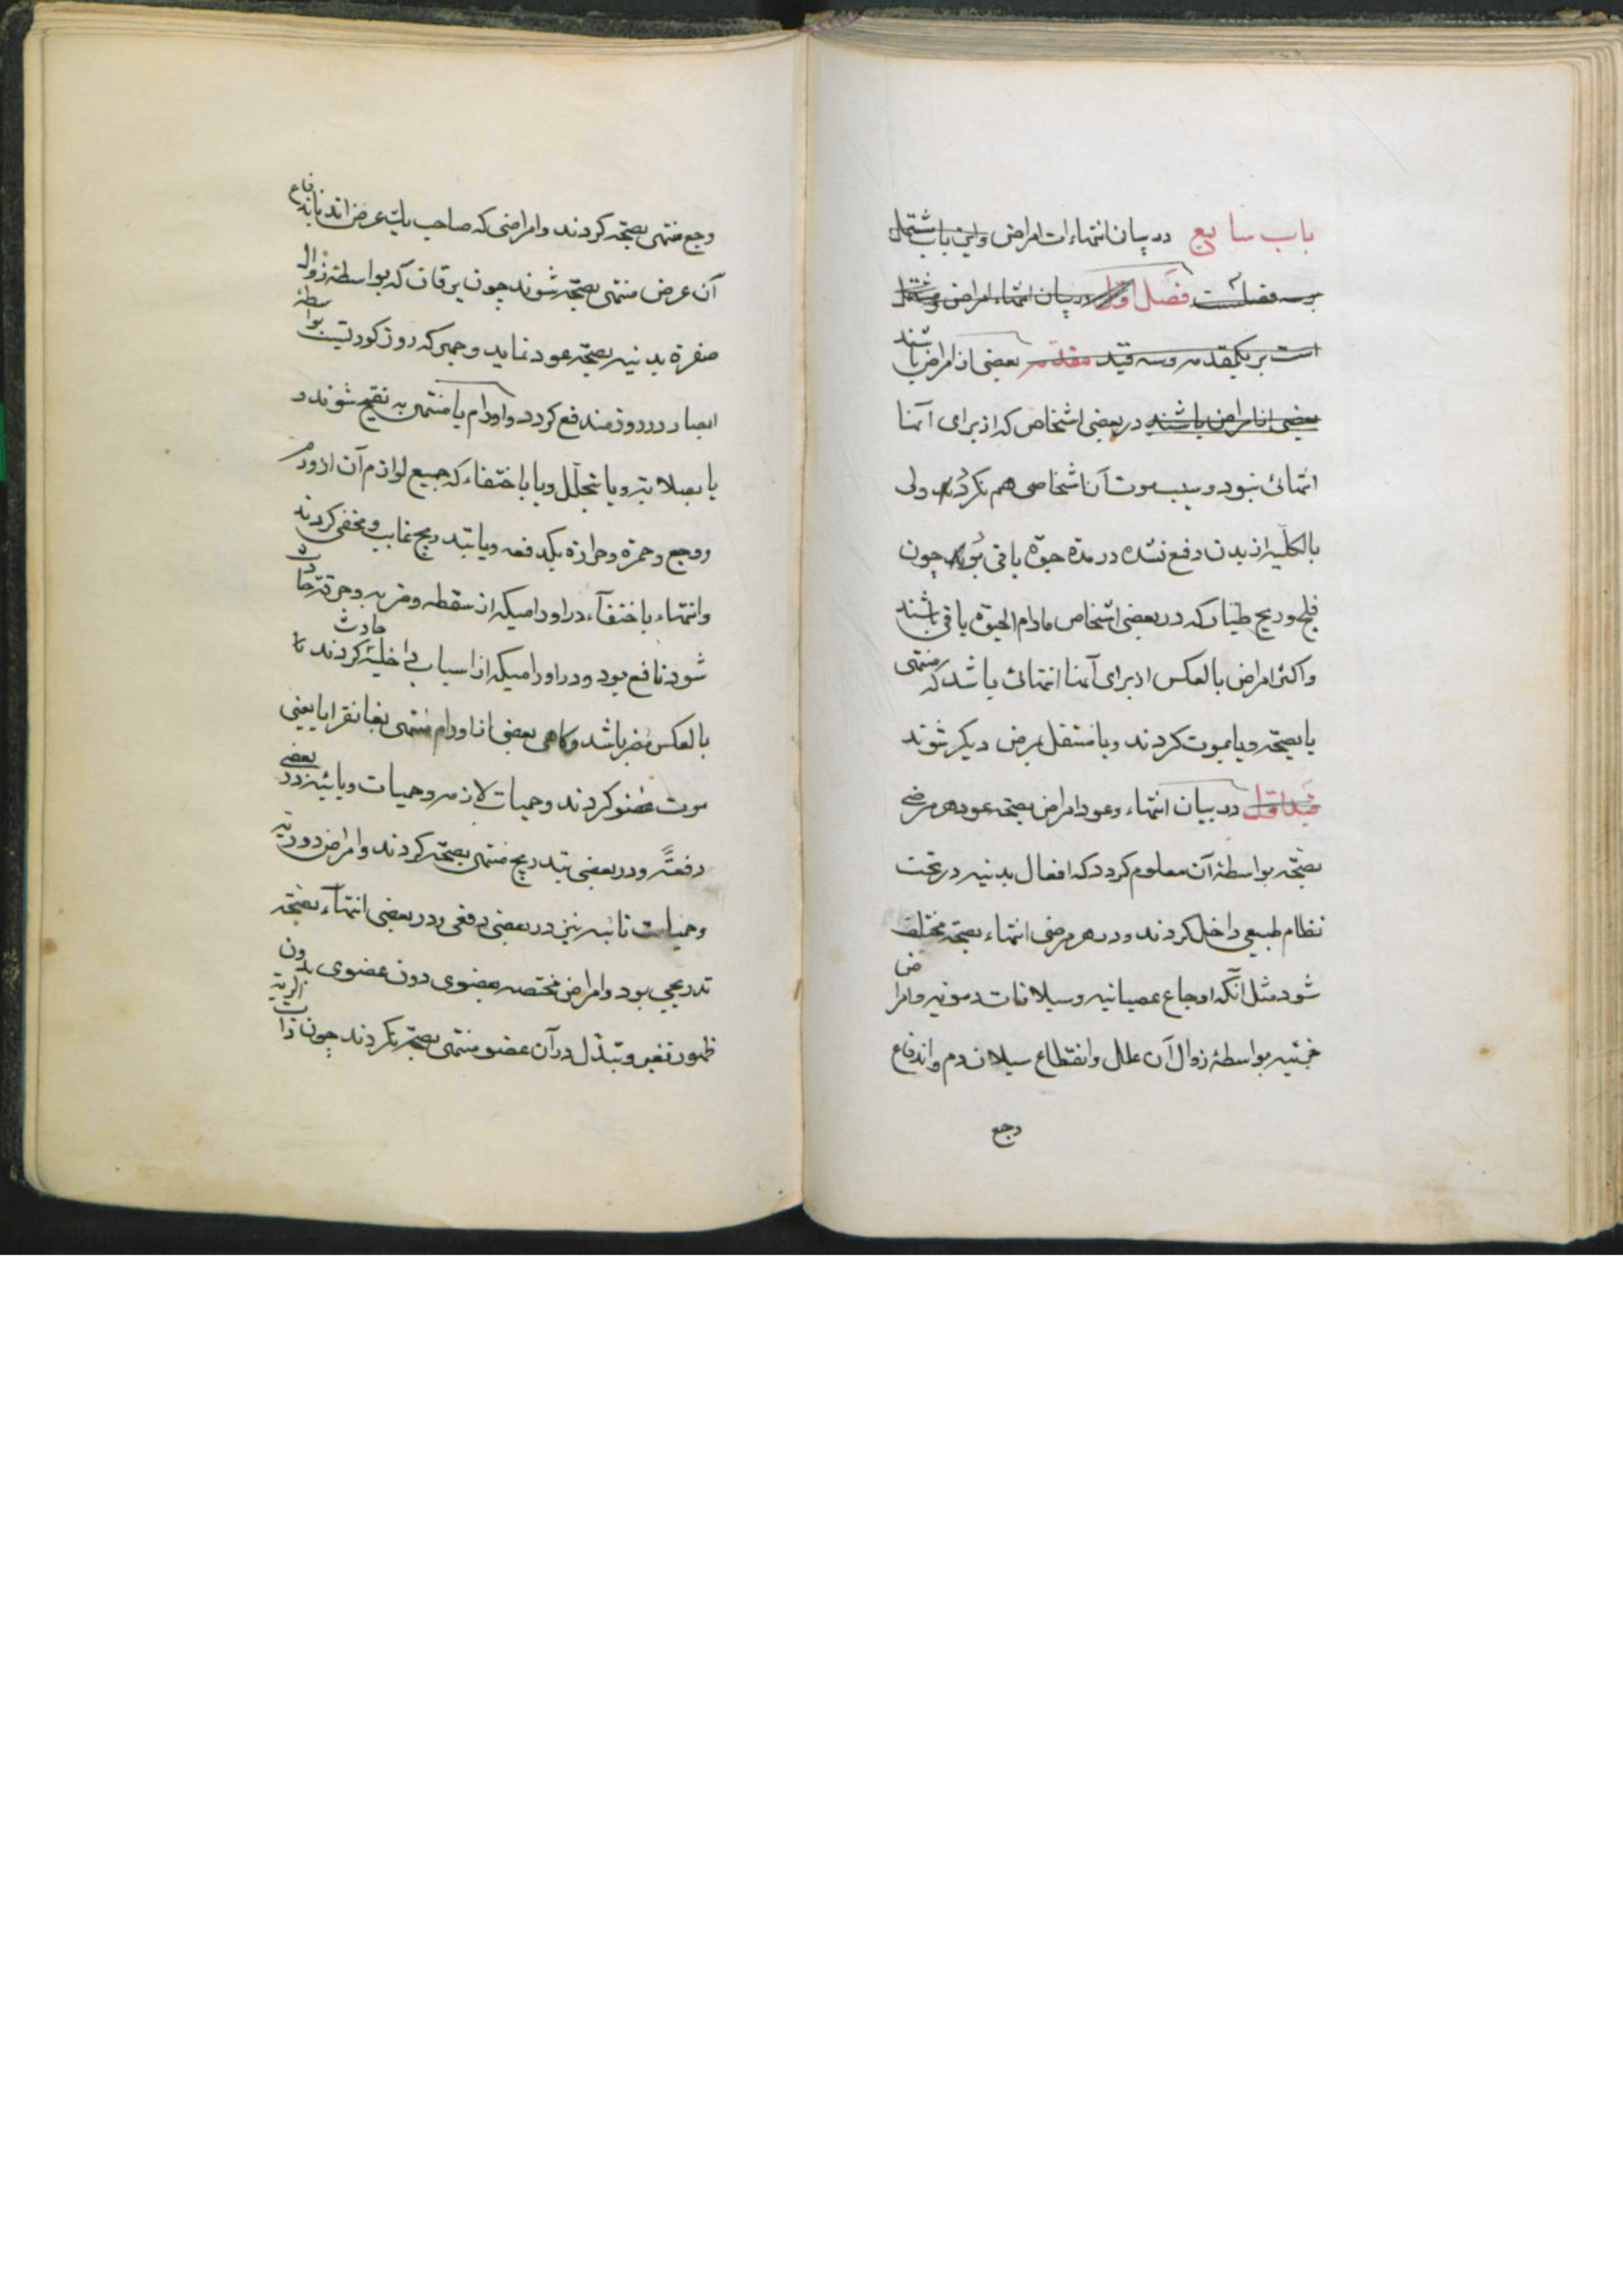 باب سابع در بیان انتهاءات امراض و این باب مشتمل
بر سه فصلست فصل اول در بیان انتهاء امراض و مشتمل
است بر یکمقدمه و سه قید مقدمه بعضی از امراض باشند
بعضی از امراض باشند در بعضی اشخاص که از برای آنها
انتهائی نبود و سبب موت آن اشخاص هم نکردند ولی
بالکلیه از بدن دفع نشده در مدة حیوة باقی بود چون
فلج و ریح طیار که در بعضی اشخاص مادام الحیوة باقی باشند
و اکثر امراض بالعکس از برای آنها انتهائی باشد که منتهی
یا بصحة و یا بموت کردند و یا منتقل بمرض دیکر شوند
قید اول در بیان انتهاء و عود امراض بصحة عود هر مرضی
بصحة بواسطهٔ آن معلوم کردد که افعال بدنیه در تحت
نظام طبیعی داخل کردند و در هر مرضی انتهاء بصحة مختلف
شود مثل آنکه اوجاع عصبانیه و سیلانات دمویه و امراض
بواسطهٔ زوال آن علل و انقطاع سیلان دم و اندفاع
وجع
وجع منتهی بصحة کردند و امراضی که صاحب یک عرض اند باندفاع
آن عرض منتهی بصحة شوند چون یرقان که بواسطهٔ زوال
صفرة بدنیه بصحة عود نماید و جهر که روز کوریست بواسطهٔ
ابصار در روز مندفع کردد و اورام یا منتهی به تقیح شوند و
یا بصلابة و یا بتحلل و یا باختفاء که جمیع لوازم آن از ورم
و وجع و حمرة و حرارة بیکدفعه و یا بتدریج غایب و مخفی کردند
و انتهاء باختفآء در اورامیکه از سقطه و ضربه و حرقة حادث
شود نافع بود و در اورامیکه از اسباب داخلیه حادث کردند
بالعکس مضر باشد و کاهی بعضی از اورام منتهی بغانقرایا یعنی
موت عضو کردند و حمیات لازمه و حمیات وبائیه در بعضی
دفعةً و در بعضی بتدریج منتهی بصحة کردند و امراض دوریه
و حمیات نائبه نیز در بعضی دفعی و در بعضی انتهآء بصحة
تدریجی بود و امراض مختصه بعضوی دون عضوی بدون
ظهور تغیر و تبدل در آن عضو منتهی بصحة نکردند چون ذات الریه